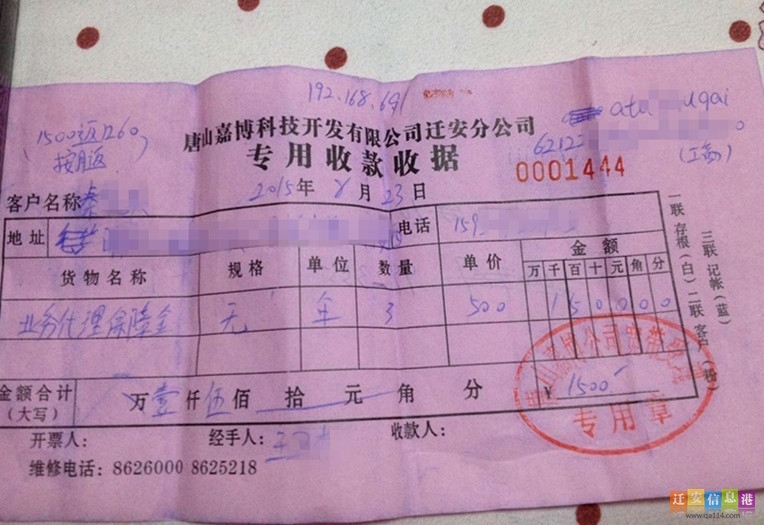 192.168.691
1500返1260,
按月返
唐山嘉博科技开发有限公司迁安分公司
专用收款收据
atu ugai
62122
(工商)
0001444
2015年8月23日
客户名称
地址 电话 159
货物名称 规格 单位 数量 单价 金额
万千百十元角分
业务代理保障金 无 年 3 500 150000
金额合计 万壹仟伍佰拾元角分 ¥1500
(大写)
专用章
开票人: 经手人: 王 收款人:
维修电话: 8626000 8625218
一联 存根(白) 二联 客户
三联 记帐(蓝)
迁安信息港
www.qa114.com